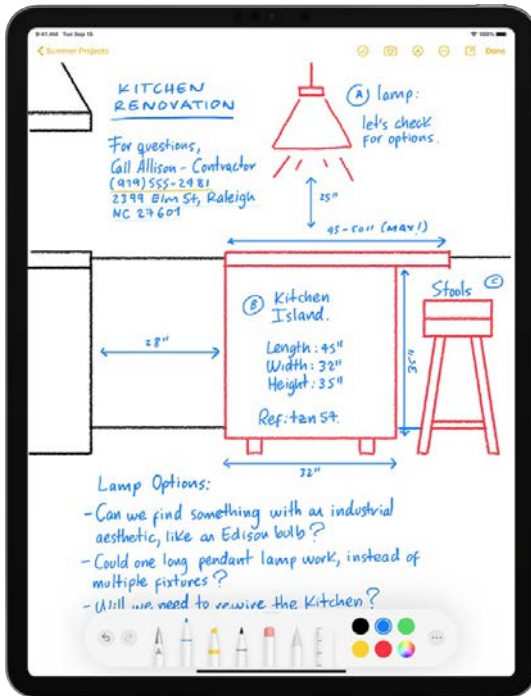 9:41 AM Tue Sep 15
100%
Summer Projects
Done
KITCHEN
RENOVATION
For questions,
Call Allison - Contractor
(919)555-2481
2399 Elm St, Raleigh
NC 27601
A lamp:
let's check
for options.
25"
45-50" (MAX!)
B Kitchen
Island.
Length: 45"
Width: 32"
Height: 35"
Ref: tzn St.
Stools C
28"
35"
32"
Lamp Options:
- Can we find something with an industrial
aesthetic, like an Edison bulb?
- Could one long pendant lamp work, instead of
multiple fixtures?
- Will we need to rewire the Kitchen?